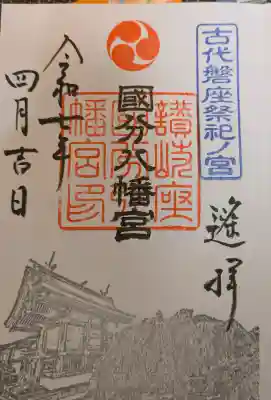 古代磐座祭祀ノ宮
遙拝
國分八幡宮
讃岐座
幡宮印
令和七年
四月吉日